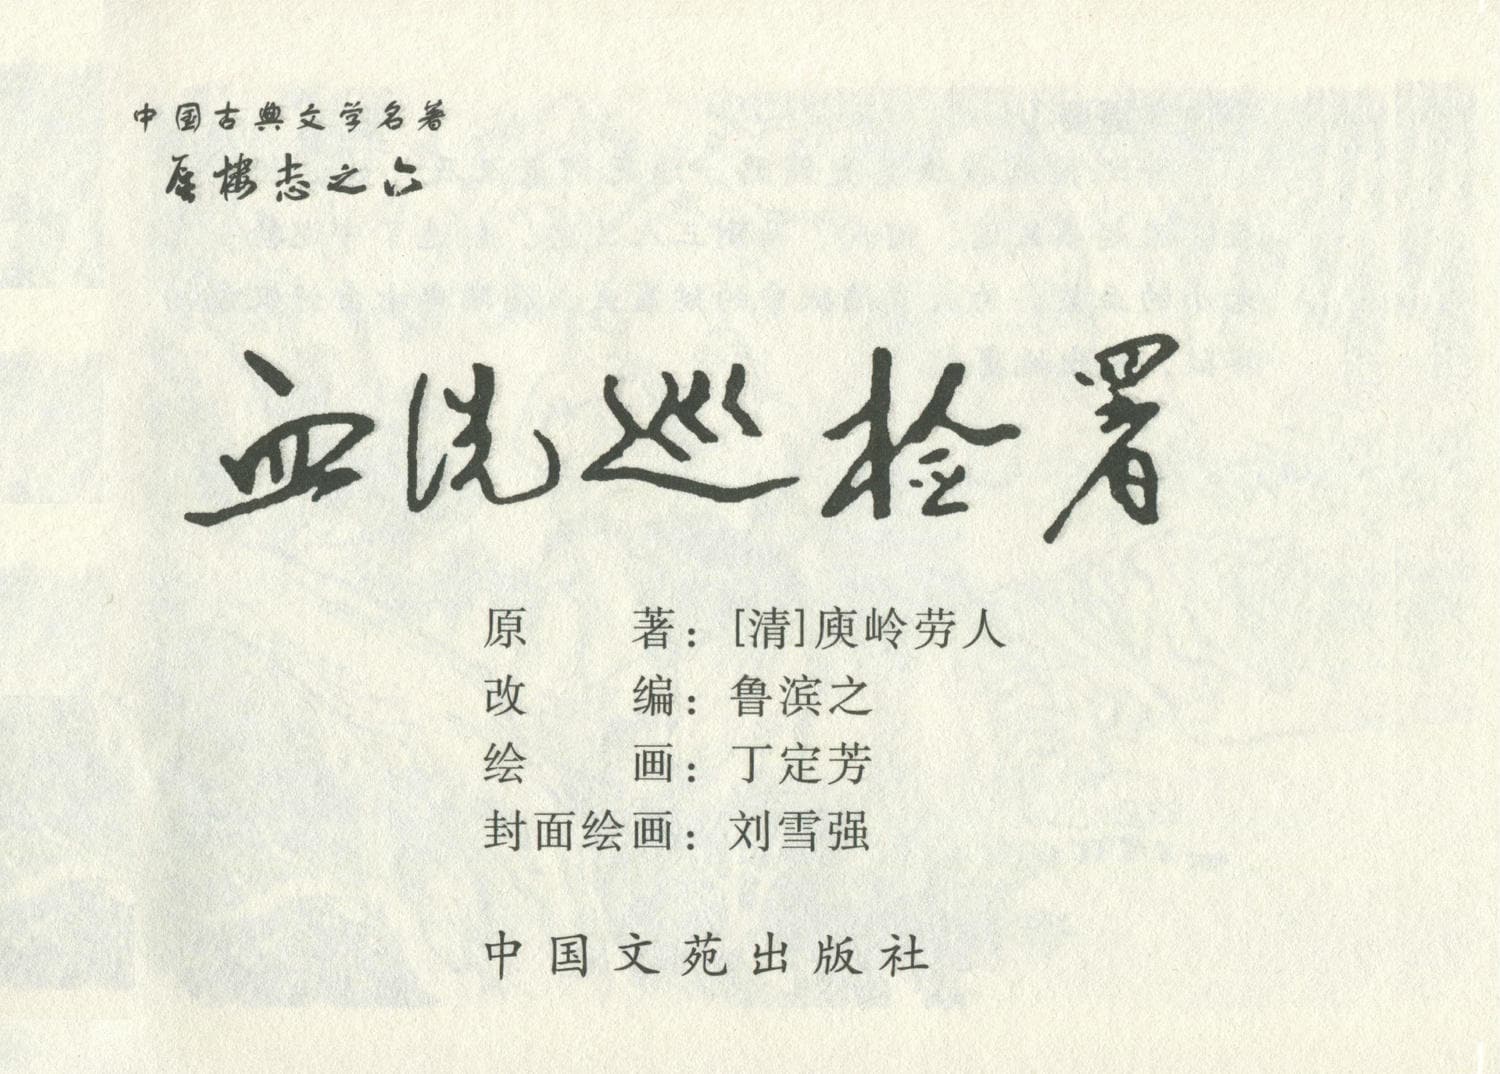 中国古典文学名著
蜃楼志之六
血洗巡检署
原著：[清]庾岭劳人
改编：鲁滨之
绘画：丁定芳
封面绘画：刘雪强
中国文苑出版社